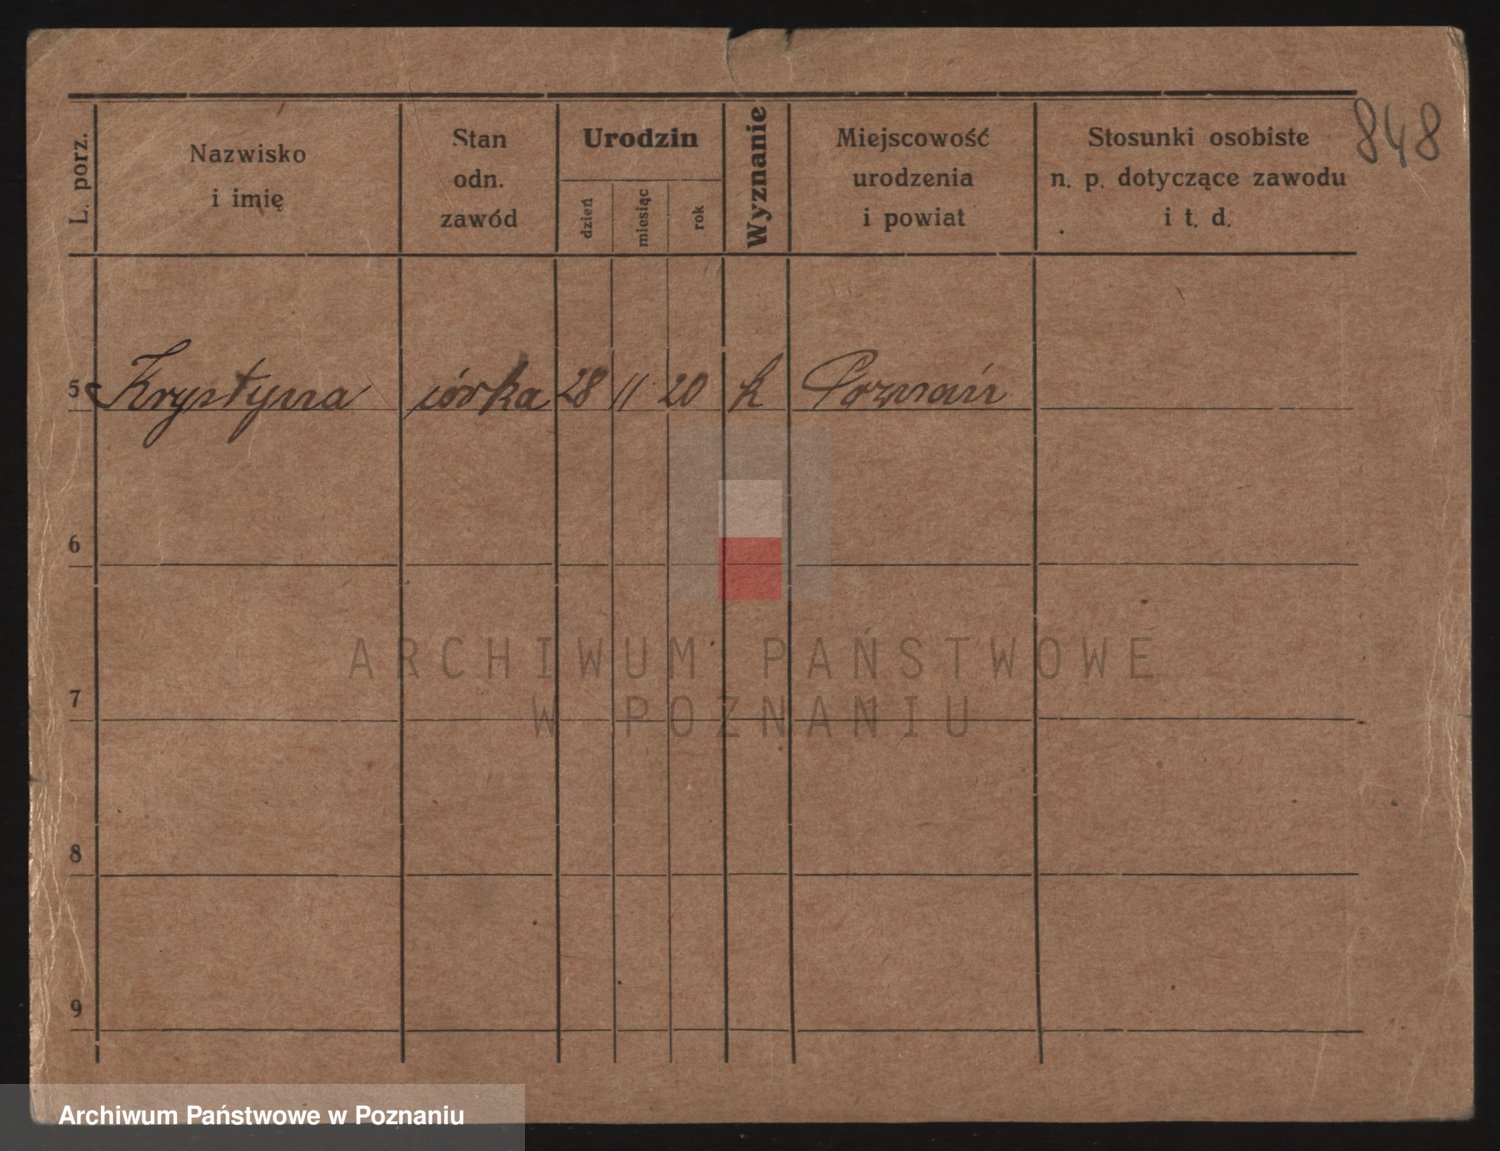 848
L. porz.
Nazwisko
i imię
Stan
odn.
zawód
Urodzin
dzień
miesiąc
rok
Wyznanie
Miejscowość
urodzenia
i powiat
Stosunki osobiste
n. p. dotyczące zawodu
i t. d.
5 Krystyna córka 28 11 20 k Poznań
6
7
8
9
ARCHIWUM PAŃSTWOWE
W POZNANIU
Archiwum Państwowe w Poznaniu